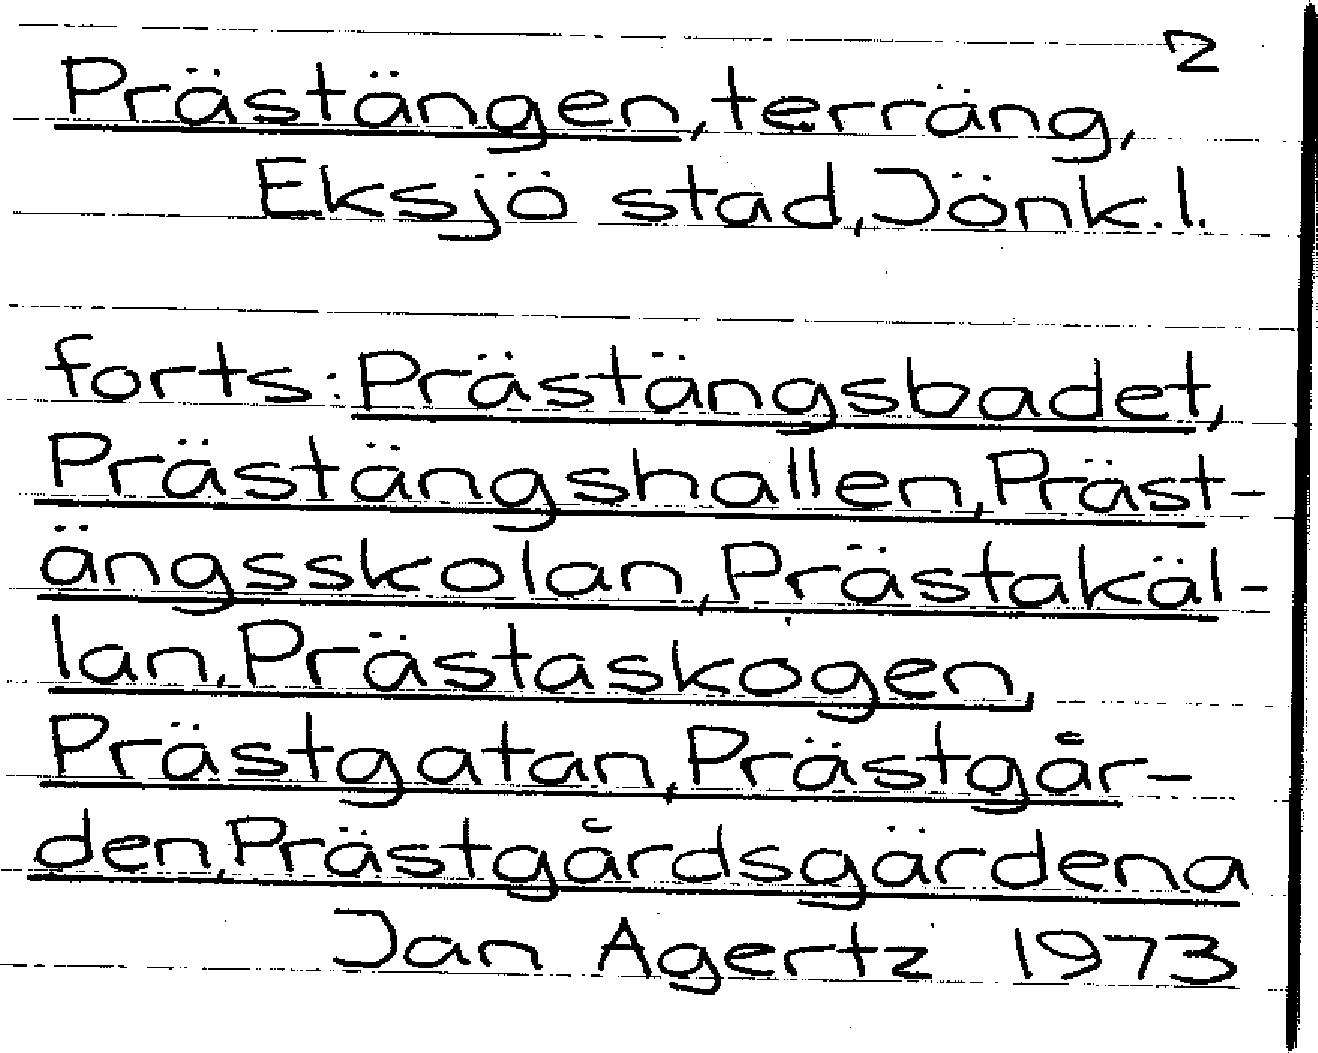 2
Prästängen, terräng,
Eksjö stad, Jönk.l.
forts: Prästängsbadet,
Prästängshallen, Präst-
ängsskolan, Prästakäl-
lan, Prästaskogen,
Prästgatan, Prästgår-
den, Prästgårdsgärdena
Jan Agertz 1973